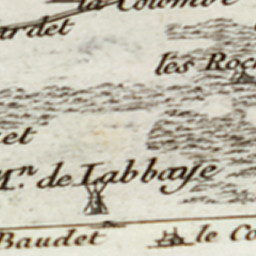 la Colombe
ardet
les Roc
et
Mn. de Labbaye
Baudet
le Co